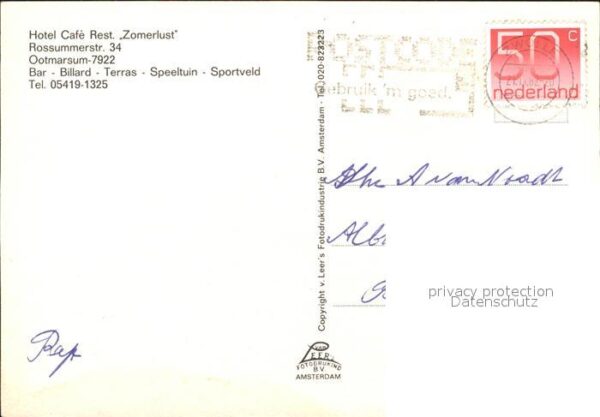 Hotel Cafè Rest. „Zomerlust"
Rossummerstr. 34
Ootmarsum-7922
Bar - Billard - Terras - Speeltuin - Sportveld
Tel. 05419-1325
Pap
Copyright v. Leer's Fotodrukindustrie B.V. Amsterdam - Tel. 020-823223
VAN
LEER'S
FOTODRUKIND
B.V.
AMSTERDAM
POSTCODE
Gebruik 'm goed.
50 c
nederland
A van Noordt
privacy protection
Datenschutz